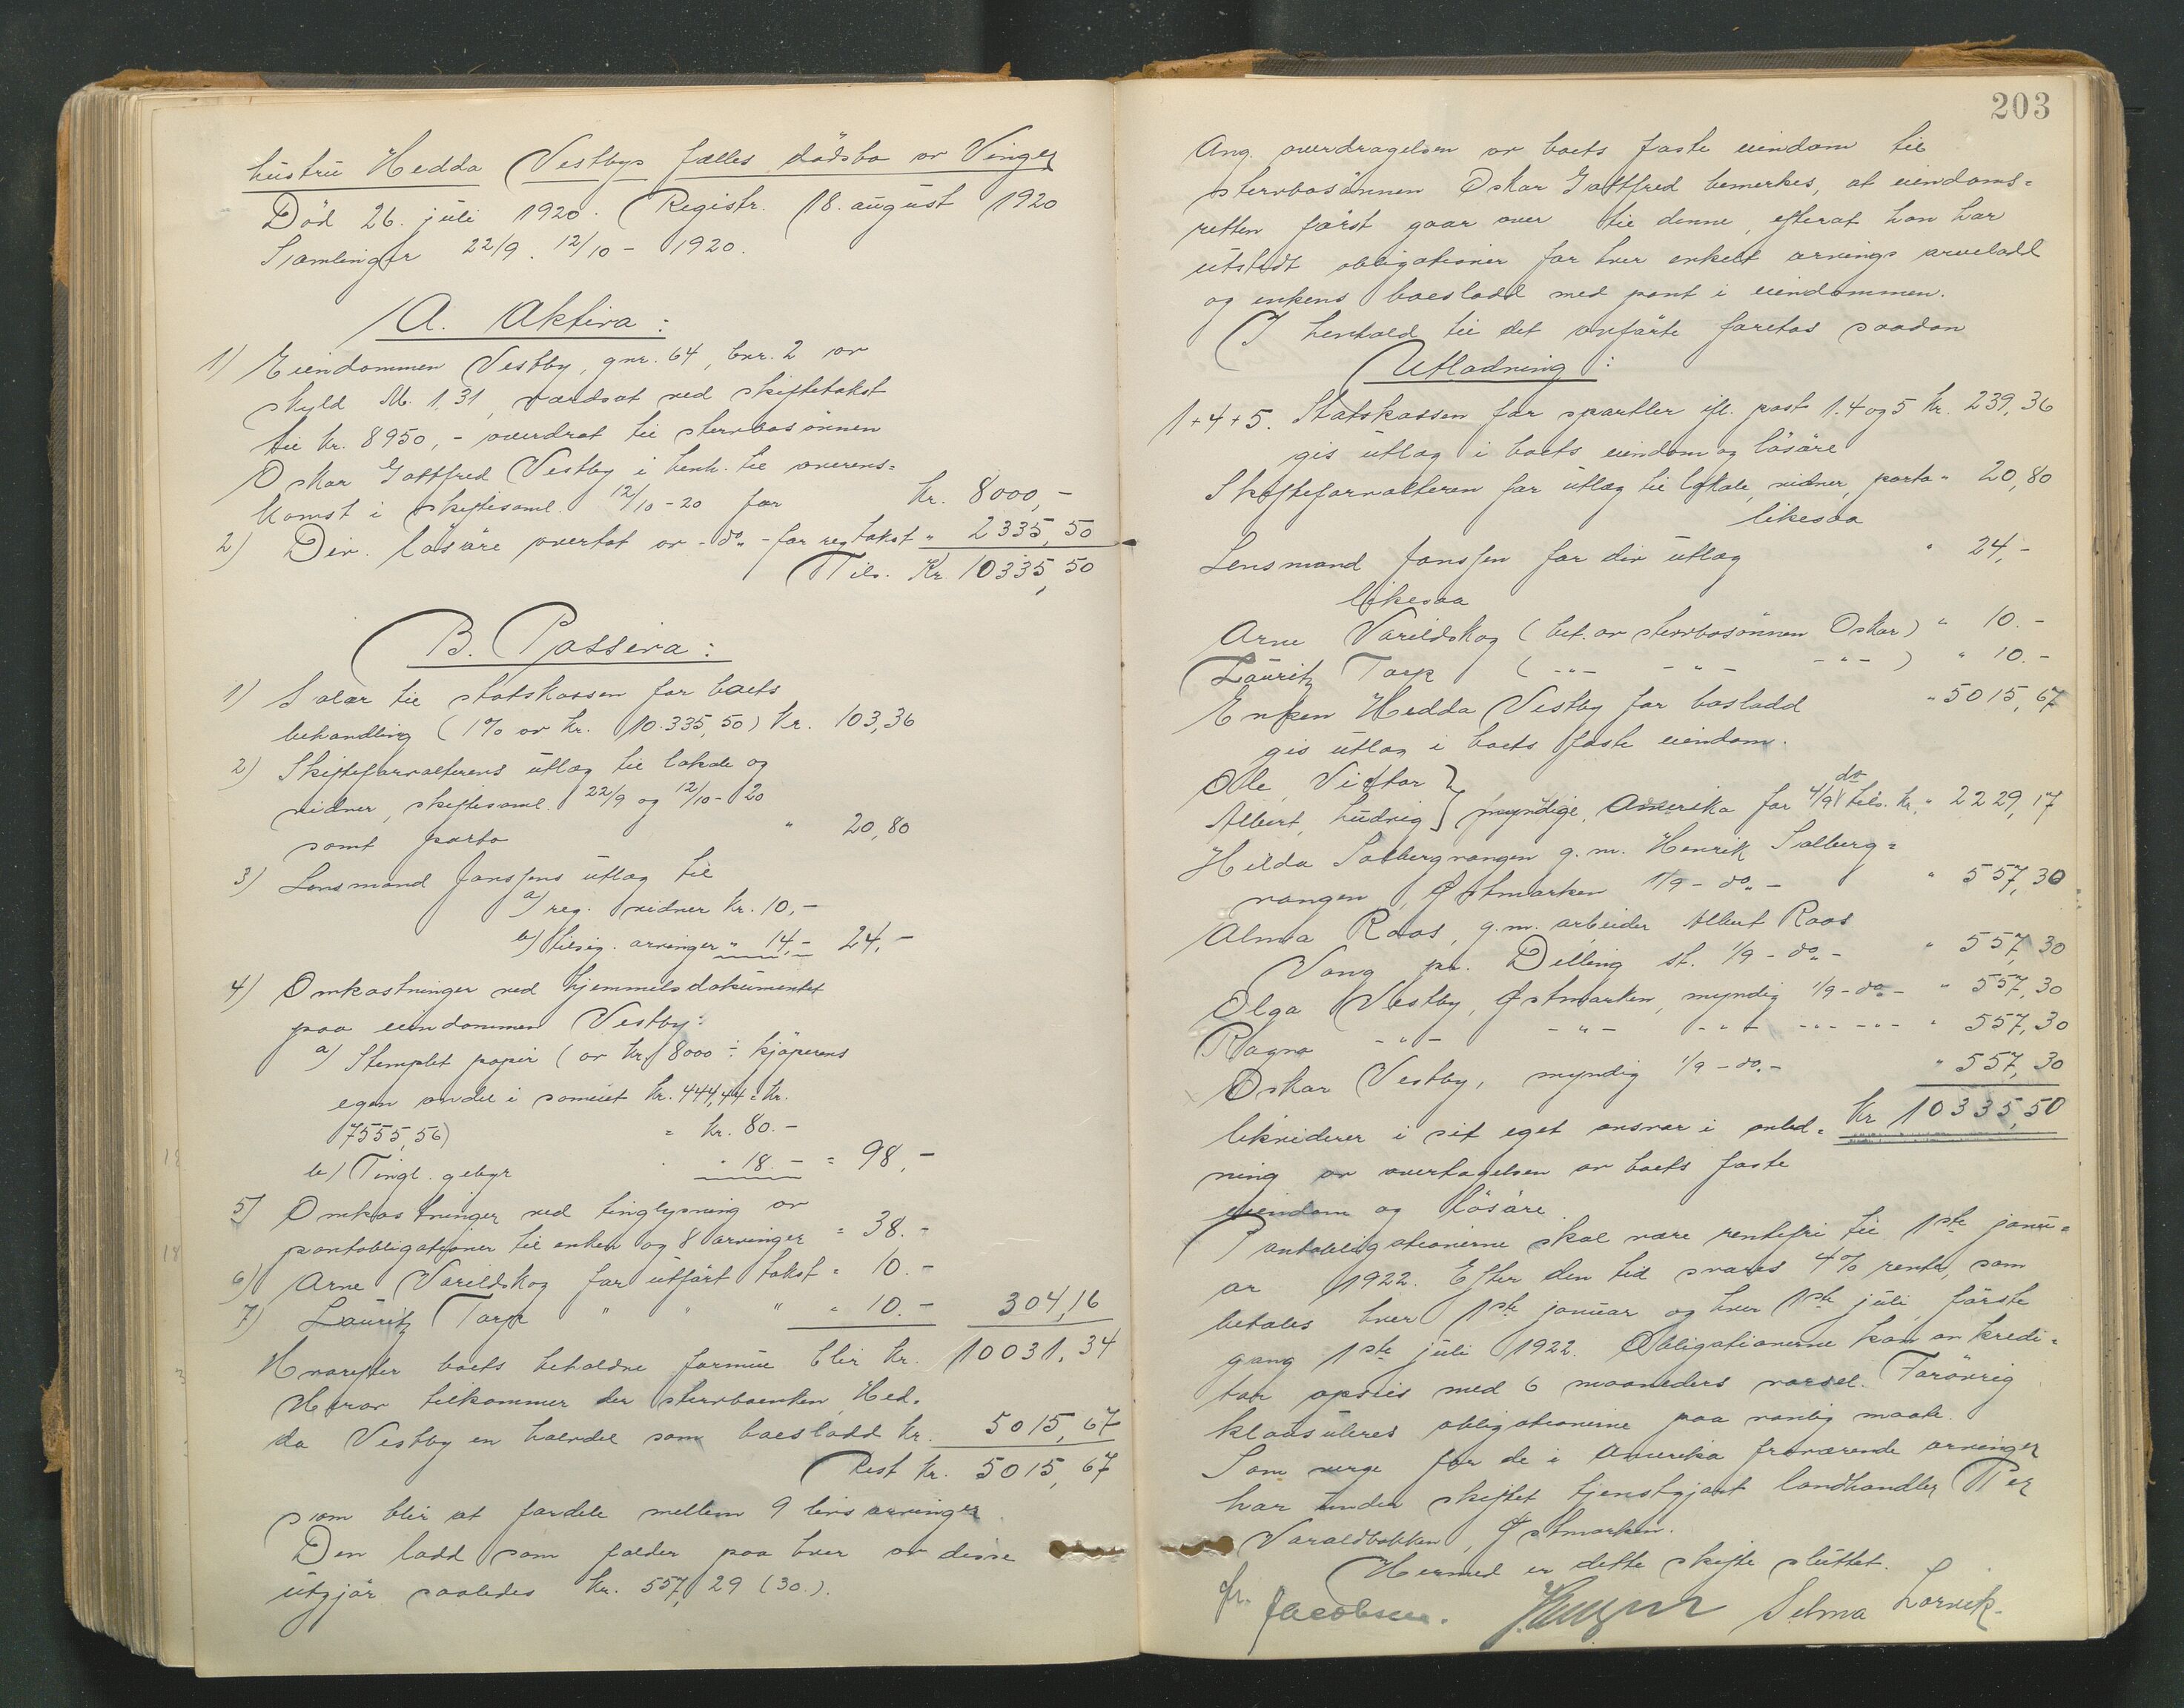 hustru Hedda Vestbys fælles dödsbo av Vinger
Död 26. juli 1920. Registr. 18. august 1920
Samlinger 22/9. 12/10 - 1920.
A. Aktiva:
1) Eiendommen Vestby, gnr. 64, bnr. 2 av
skyld M. 1,31, værdsat ved skiftetakst
til kr. 8950,- overdrat til stervbosönnen
Oskar Gottfred Vestby i henh. til overens=
komst i skiftesaml. 12/10-20 for kr. 8000,-
2) Div. lösöre overtat av - do. - for regtakst " 2335,50
Tils. Kr. 10335,50
B. Passiva:
1) Salær til statskassen for boets
behandling (1% av kr. 10.335,50) kr. 103,36
2) Skifteforvalterens utlæg til lokale og
vidner, skiftesaml. 22/9 og 12/10-20
samt porto " 20,80
3) Lensmand Janssens utlæg til
a) reg. vidner kr. 10,-
b) tilsig. arvinger " 14,- 24,-
4) Omkostninger ved hjemmelsdokumentet
paa eiendommen Vestby:
a) Stemplet papir (av kr. 8000 ÷ kjöperens
egen andel i sameiet kr. 444,44 = kr.
7555,56) = kr. 80.-
b) Tingl. gebyr " 18.- = 98,-
5) Omkostninger ved tinglysning av
pantobligationer til enken og 8 arvinger = 38.-
6) Arne Varildskog for utfört takst = 10.-
7) Lauritz Torp " " " = 10.- 304,16
Hvorefter boets beholdne formue blir kr. 10031,34
Herav tilkommer der stervboenken Hed=
da Vestby en halvdel som boeslodd kr. 5015,67
Rest kr. 5015,67
som blir at fordele mellem 9 livsarvinger.
Den lodd som falder paa hver av disse
utgjör saaledes kr. 557,29 (30.).
203
Ang. overdragelsen av boets faste eiendom til
stervbosönnen Oskar Gottfred bemerkes, at eiendoms=
retten först gaar over til denne, efterat han har
utstedt obligationer for hver enkelt arvings arvelodd
og enkens boeslodd med pant i eiendommen.
I henhold til det anförte foretas saadan
Utlodning:
1+4+5. Statskassen for sportler ifl. post 1.4 og 5 kr. 239,36
gis utlæg i boets eiendom og lösöre
Skifteforvalteren for utlæg til lokale, vidner, porto " 20,80
likesaa
Lensmand Janssen for div utlæg " 24,-
likesaa
Arne Varildskog (bet. av stervbosönnen Oskar) " 10.-
Lauritz Torp ( -"- -"- -"- ) " 10.-
Enken Hedda Vestby for boslodd " 5015,67
gis utlæg i boets faste eiendom.
Ole, Viktor
Albert, Ludvig } myndige, Amerika for 4/9 do tils. kr. " 2229,17
Hilda Solbergvangen g.m. Henrik Solberg=
vangen, Östmarken 1/9 - do. - " 557,30
Alma Roos, g.m. arbeider Albert Roos
Vang pr. Dilling st. 1/9 - do. - " 557,30
Olga Vestby, Östmarken, myndig 1/9 - do. - " 557,30
Ragna -"- -"- -"- -"- -"- " 557,30
Oskar Vestby, myndig 1/9 - do. - " 557,30
likviderer i sit eget ansvar i anled= Kr 10335,50
ning av overtagelsen av boets faste
eiendom og lösöre.
Pantobligationerne skal være rentefri til 1ste janu=
ar 1922. Efter den tid svares 4% rente, som
betales hver 1ste januar og hver 1ste juli, förste
gang 1ste juli 1922. Obligationerne kan av kredi=
tor opsies med 6 maaneders varsel. Forövrig
klausuleres obligationerne paa vanlig maate.
Som verge for de i Amerika fraværende arvinger
har under skiftet tjenstgjort landhandler Per
Varaldbakken, Östmarken.
Hermed er dette skifte sluttet.
Fr. Jacobsen. Selma Larvik.